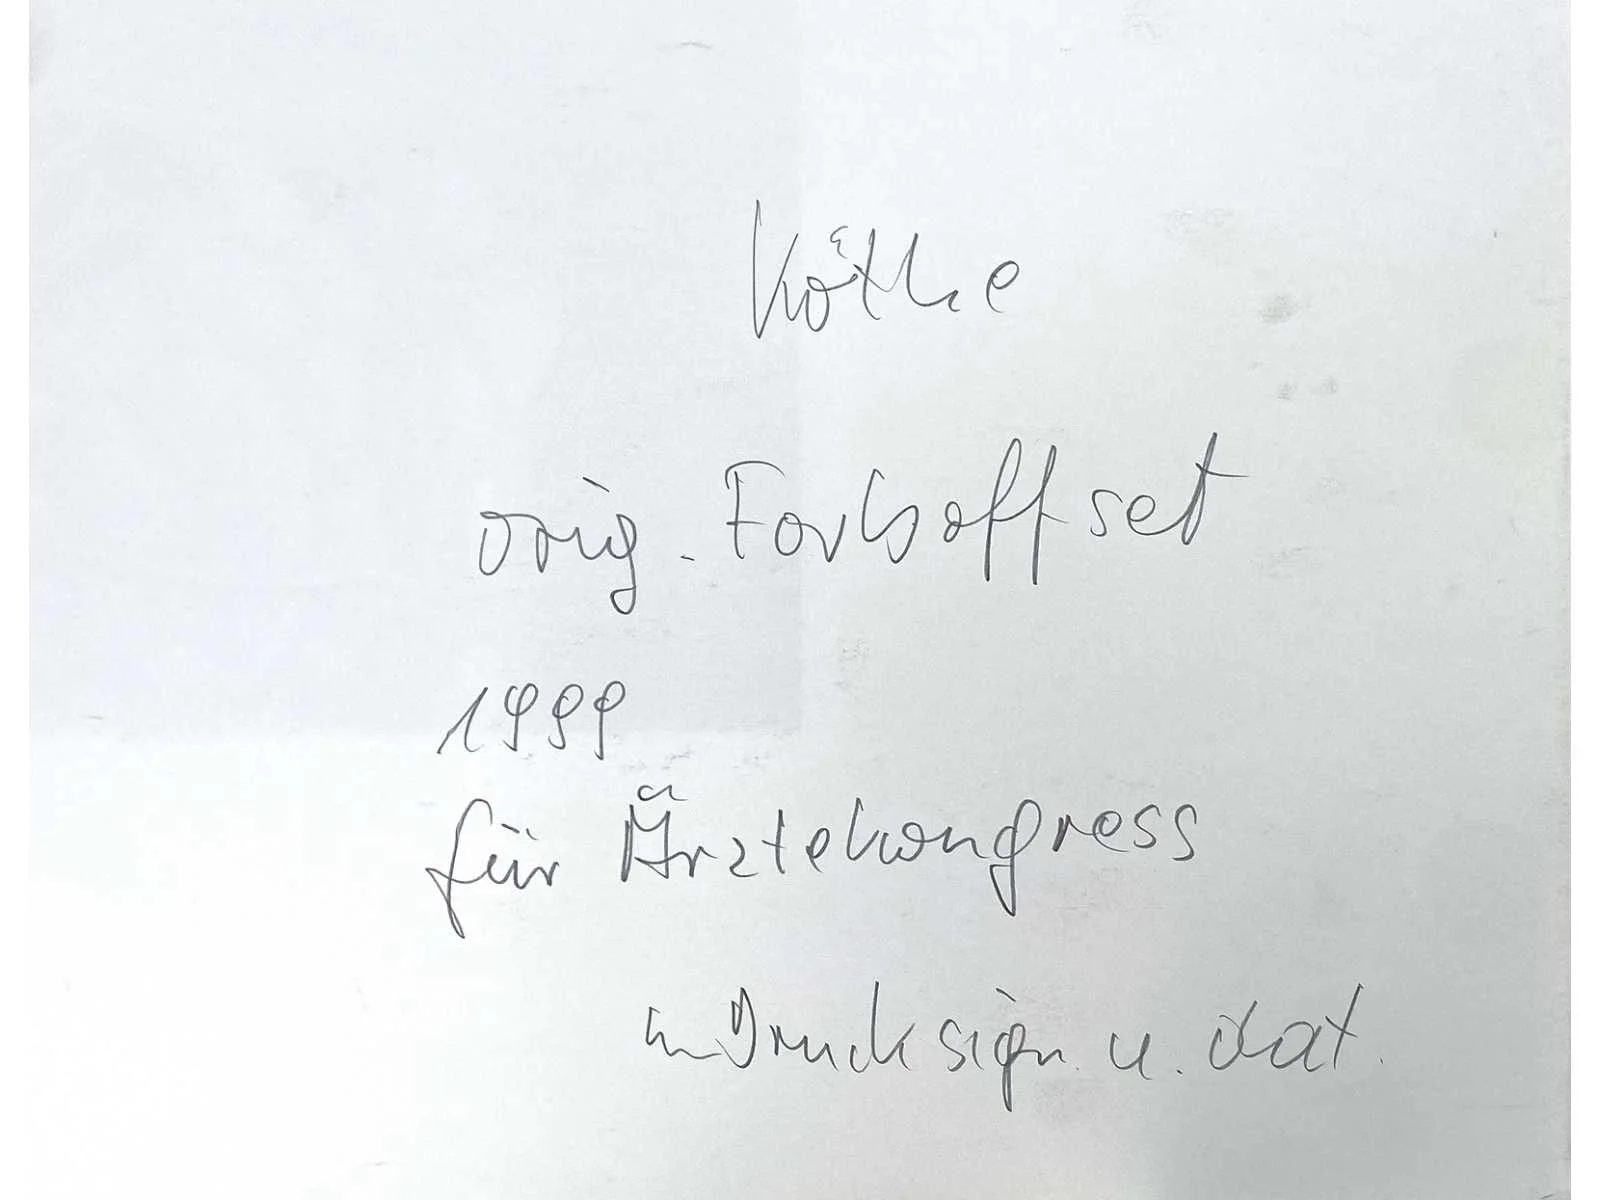 Köthe
orig. Farboffset
1999
für Ärztekongress
im Druck sign. u. dat.